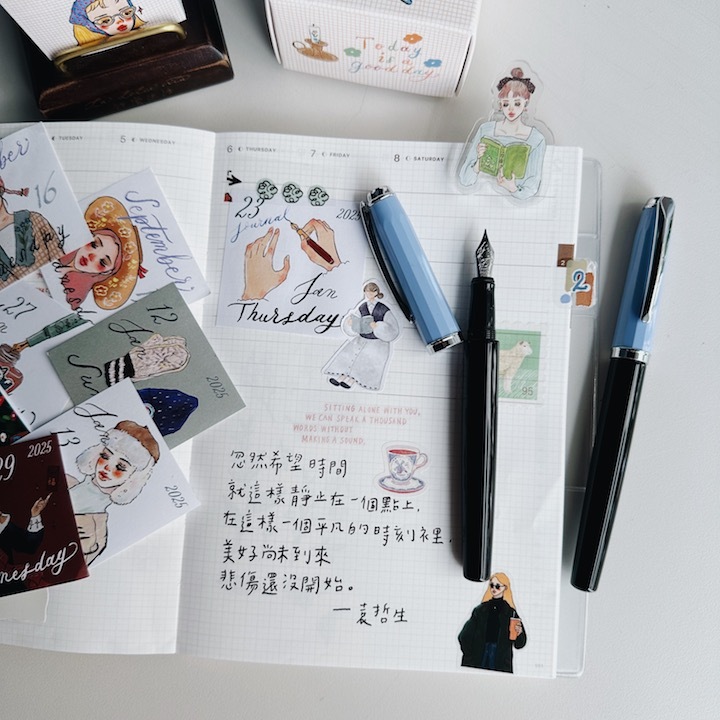 Today
is a
good day
TUESDAY
5 WEDNESDAY
6 THURSDAY
7 FRIDAY
8 SATURDAY
16
September
23
Journal
2025
Jan
Thursday
27
12
Jan
2025
13
Jan
2025
29
2025
2
95
SITTING ALONE WITH YOU,
WE CAN SPEAK A THOUSAND
WORDS WITHOUT
MAKING A SOUND.
忽然希望時間
就這樣靜止在一個點上,
在這樣一個平凡的時刻裡,
美好尚未到來
悲傷還沒開始。
—袁哲生